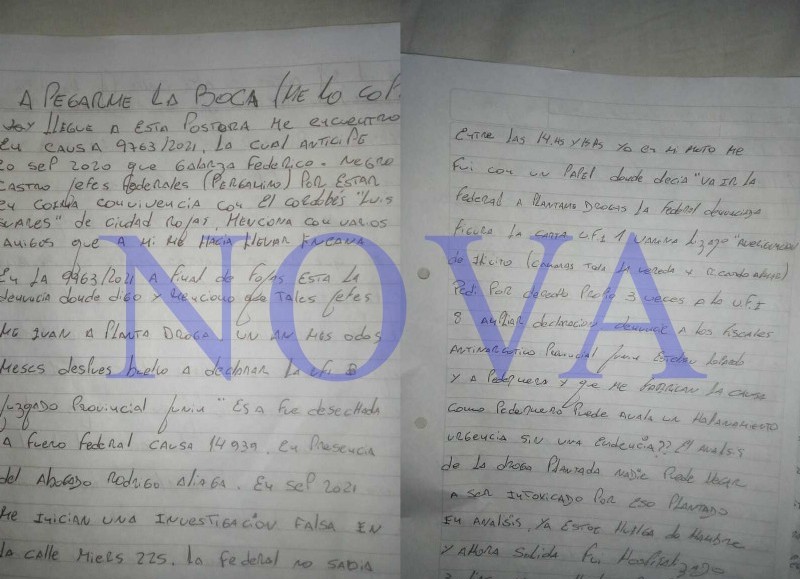 A PEGARME LA BOCA (ME LO COP
HOY LLEGUE A ESTA POSTURA ME ENCUENTRO
EN CAUSA 9763/2021, LA CUAL ANTICIPE
20 SEP 2020 QUE GALARZA FEDERICO - NEGRO
CASTRO JEFES FEDERALES (PERGAMINO) POR ESTAR
EN CONNIVENCIA CON EL CORDOBÉS "LUIS
SUARES" DE CIUDAD ROJAS, MENCIONA CON VARIOS
AMIGOS QUE A MI ME HACIA LLEVAR EN CANA
EN LA 9763/2021 A FINAL DE FOJAS ESTA LA
DENUNCIA DONDE DIGO Y MENCIONO QUE TALES JEFES
ME IVAN A PLANTA DROGA, UN AN MES O DOS
MESES DESPUES BUELVO A DECLARAR LA UFI 8
JUZGADO PROVINCIAL JUNIN "ESA FUE DESECHADA
A FUERO FEDERAL CAUSA 14939, EN PRESENCIA
DEL ABOGADO RODRIGO ALIAGA. EN SEP 2021
ME INICIAN UNA INVESTIGACIÓN FALSA EN
LA CALLE MIERS 225. LA FEDERAL NO SABIA
ENTRE LAS 14HS Y 15HS YO EN MI MOTO ME
FUI CON UN PAPEL DONDE DECIA "VA IR LA
FEDERAL A PLANTARME DROGAS LA FEDERAL
FIGURA LA CARTA U.F.I 1 VANINA LIZAZO "AVERIGUACION
DE ILICITO (CAMARAS TODA LA VEREDA Y RICARDO
PEDI POR DECRETO PROPIO 3 VECES A LA U.F.I
8 AMPLIAR DECLARACION DENUNCIE A LOS FISCALES
ANTINARCOTICO PROVINCIAL JUNIN ESTEBAN
Y A PEDERNERA Y QUE ME FABRICAN LA CAUSA
COMO PEDERNERA PUEDE AVALA UN HALLANAMIENTO
URGENCIA SIN UNA EVIDENCIA?? EL ANALISIS
DE LA DROGA PLANTADA NADIE PUEDE LLEGAR
A SER INTOXICADO POR ESO PLANTADO
EN ANALISIS, YA ESTOY HUELGA DE HAMBRE
Y AHORA SALIDA FUI HOSPITALIZADO
NOVA